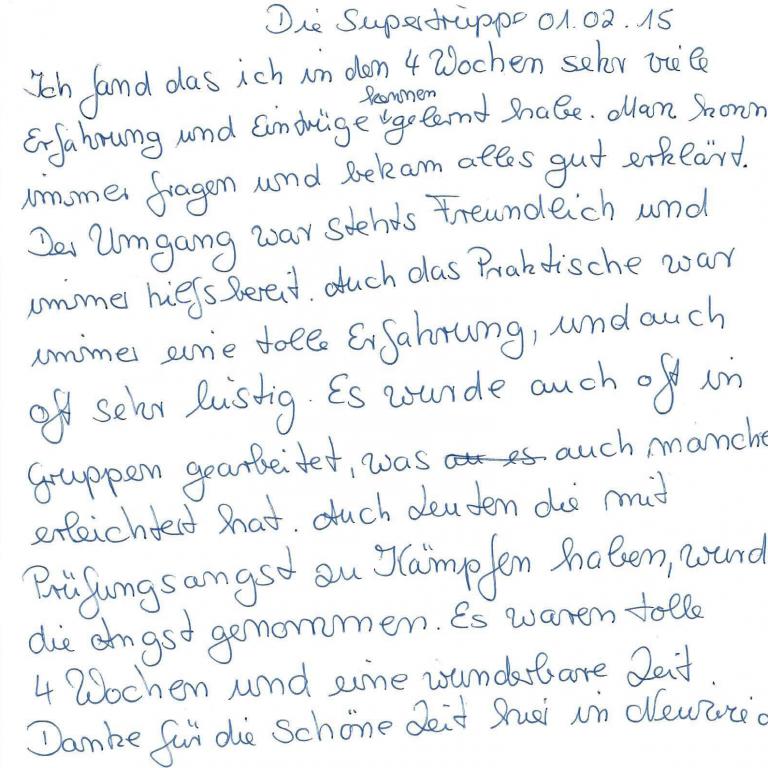 Die Supertruppe 01.02.15
Ich fand das ich in den 4 Wochen sehr viele
kennen
Erfahrung und Eindrüge gelernt habe. Man konn
immer fragen und bekam alles gut erklärt.
Der Umgang war stehts Freundlich und
immer hilfsbereit. Auch das Praktische war
immer eine tolle Erfahrung, und auch
oft sehr lustig. Es wurde auch oft in
Gruppen gearbeitet, was auch manche
erleichtert hat. Auch Leuten die mit
Prüfungsangst zu Kämpfen haben, wurd
die Angst genommen. Es waren tolle
4 Wochen und eine wunderbare Zeit.
Danke für die schöne Zeit hier in Neuwied